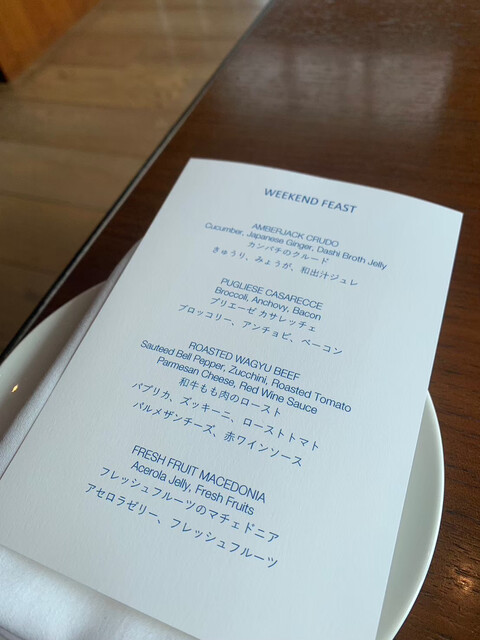 WEEKEND FEAST
AMBERJACK CRUDO
Cucumber, Japanese Ginger, Dashi Broth Jelly
カンパチのクルード
きゅうり、みょうが、和出汁ジュレ
PUGLIESE CASARECCE
Broccoli, Anchovy, Bacon
プリエーゼ カサレッチェ
ブロッコリー、アンチョビ、ベーコン
ROASTED WAGYU BEEF
Sauteed Bell Pepper, Zucchini, Roasted Tomato
Parmesan Cheese, Red Wine Sauce
和牛もも肉のロースト
パプリカ、ズッキーニ、ローストトマト
パルメザンチーズ、赤ワインソース
FRESH FRUIT MACEDONIA
Acerola Jelly, Fresh Fruits
フレッシュフルーツのマチェドニア
アセロラゼリー、フレッシュフルーツ